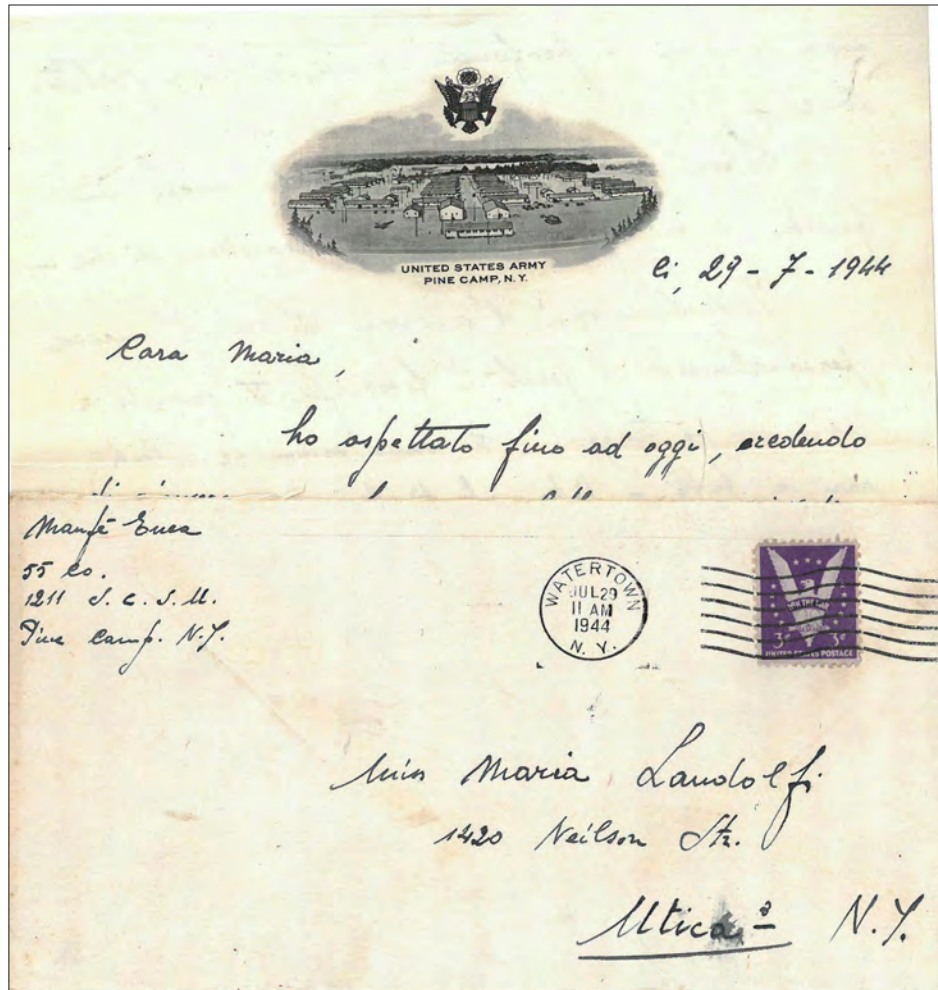 UNITED STATES ARMY
PINE CAMP, N.Y.
li, 29-7-1944
Cara Maria,
ho aspettato fino ad oggi, credendo
Manfè Enea
55 Co.
1211 S.C.S.U.
Pine Camp. N.Y.
WATERTOWN
JUL 29
11 AM
1944
N. Y.
WIN THE WAR
3¢ 3¢
UNITED STATES POSTAGE
Miss Maria Landolfi
1420 Neilson Str.
Utica N.Y.